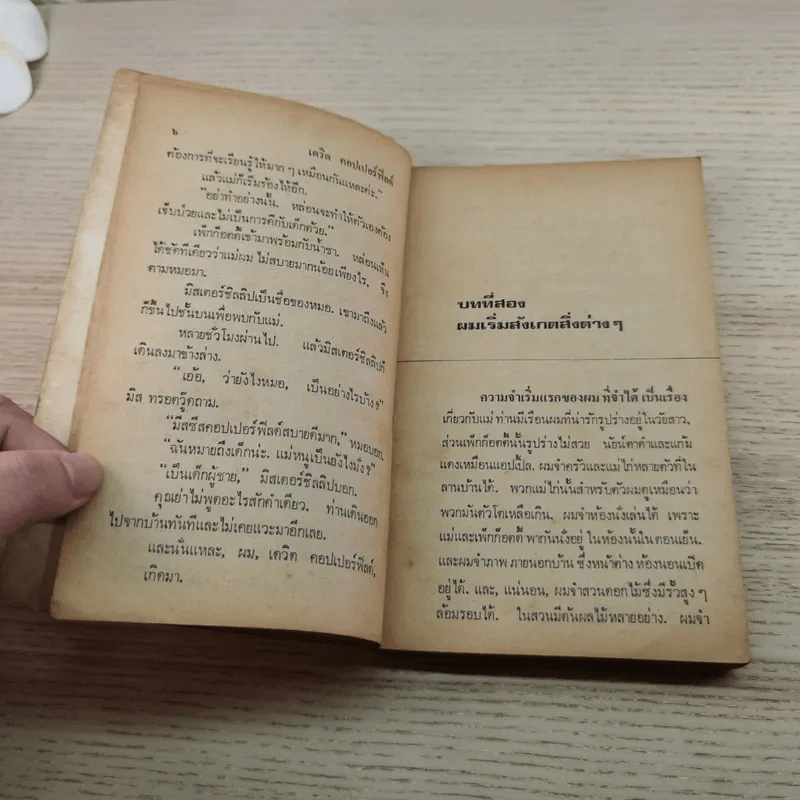 ๖
เดวิด คอปเปอร์ฟีลด์
ต้องการที่จะเรียนรู้ให้มาก ๆ เหมือนกันแหละค่ะ."
แล้วแม่ก็เริ่มร้องไห้อีก.
"อย่าทำอย่างนั้น. หล่อนจะทำให้ตัวเองต้อง
เจ็บป่วยและไม่เป็นการดีกับเด็กด้วย."
เพ็กก็อตตี้เข้ามาพร้อมกับน้ำชา. หล่อนเห็น
ได้ชัดทีเดียวว่าแม่ผม ไม่สบายมากน้อยเพียงไร, จึง
ตามหมอมา.
มิสเตอร์ชิลลิปเป็นชื่อของหมอ. เขามาถึงแล้ว
ก็ขึ้นไปชั้นบนเพื่อพบกับแม่.
หลายชั่วโมงผ่านไป. แล้วมิสเตอร์ชิลลิปก็
เดินลงมาข้างล่าง.
"เอ้อ, ว่ายังไงหมอ, เป็นอย่างไรบ้าง?"
มิส ทรอตวู๊ดถาม.
"มิสซิสคอปเปอร์ฟีลด์สบายดีมาก," หมอบอก.
"ฉันหมายถึงเด็กน่ะ. แม่หนูเป็นยังไงมั่ง?"
"เป็นเด็กผู้ชาย," มิสเตอร์ชิลลิปบอก.
คุณย่าไม่พูดอะไรสักคำเดียว. ท่านเดินออก
ไปจากบ้านทันทีและไม่เคยแวะมาอีกเลย.
และนั่นแหละ, ผม, เดวิด คอปเปอร์ฟีลด์,
เกิดมา.
บทที่สอง
ผมเริ่มสังเกตสิ่งต่าง ๆ
ความจำเริ่มแรกของผม ที่จำได้ เป็นเรื่อง
เกี่ยวกับแม่ ท่านมีเรือนผมที่น่ารักรูปร่างอยู่ในวัยสาว,
ส่วนเพ็กก็อตตี้นั้นรูปร่างไม่สวย นัยน์ตาดำและแก้ม
แดงเหมือนแอปเปิ้ล. ผมจำครัวและแม่ไก่หลายตัวที่ใน
ลานบ้านได้. พวกแม่ไก่นั้นสำหรับตัวผมดูเหมือนว่า
พวกมันตัวโตเหลือเกิน. ผมจำห้องนั่งเล่นได้ เพราะ
แม่และเพ็กก็อตตี้ พากันนั่งอยู่ ในห้องนั้นในตอนเย็น.
และผมจำภาพ ภายนอกบ้าน ซึ่งหน้าต่าง ห้องนอนเปิด
อยู่ได้. และ, แน่นอน, ผมจำสวนดอกไม้ซึ่งมีรั้วสูง ๆ
ล้อมรอบได้. ในสวนมีต้นผลไม้หลายอย่าง. ผมจำ